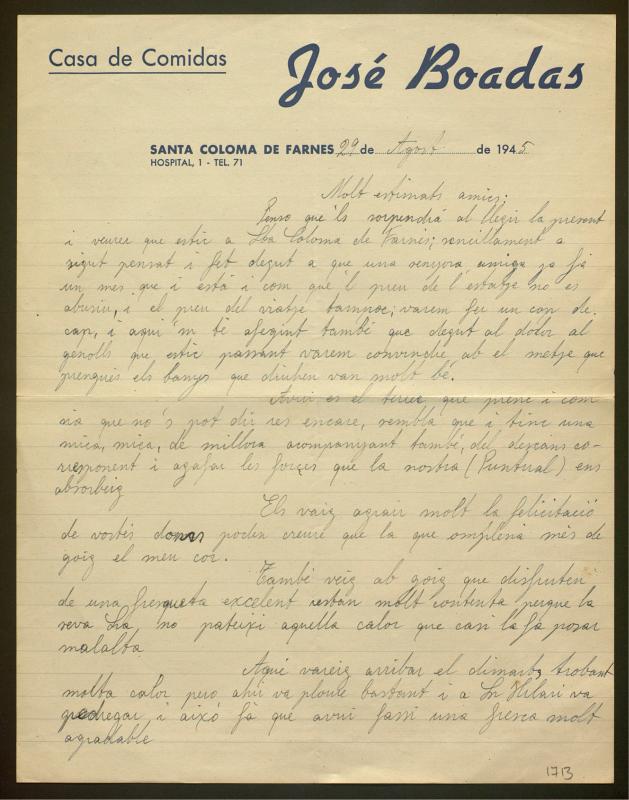 Casa de Comidas
José Boadas
SANTA COLOMA DE FARNES 29 de Agost de 1945
HOSPITAL, 1 - TEL. 71
Molt estimats amics:
Penso que 'ls sorpendrá al llegir la present
i veurer que estic a Sta Coloma de Farnés; sencillament a
sigut pensat i fet degut a que una senyora amiga ja fá
un mes que i está i com que 'l preu de l'estatje no es
abusiu, i el preu del viatje tampoc; varem fer un cop de
cap, i aqui 'm té afegint també que degut al dolor al
genolls que estic passant varem convindre ab el metje que
prengués els banys que diuhen van molt bé.
Avui es el tercer que prenc i com
sia que no 's pot dir res encare, sembla que i tinc una
mica, mica, de millora acompanyant també, del descans co-
rresponent i agafar les forçes que la nostra (Puntual) ens
absorbeig
Els vaig agrair molt la felicitació
de vostés donss poden creure que la que omplena més de
goig el meu cor.
També veig ab goig que disfruten
de una fresqueta excelent estan molt contenta perque la
seva Sra, no pateixi aquella calor que casi la fá posar
malalta
Aqui vareig arribar el dimarts trobant
molta calor pero ahir va ploure bastant i a Sn Hilari va
pedregar, i aixó fá que avui fassi una fresca molt
agradable
1713